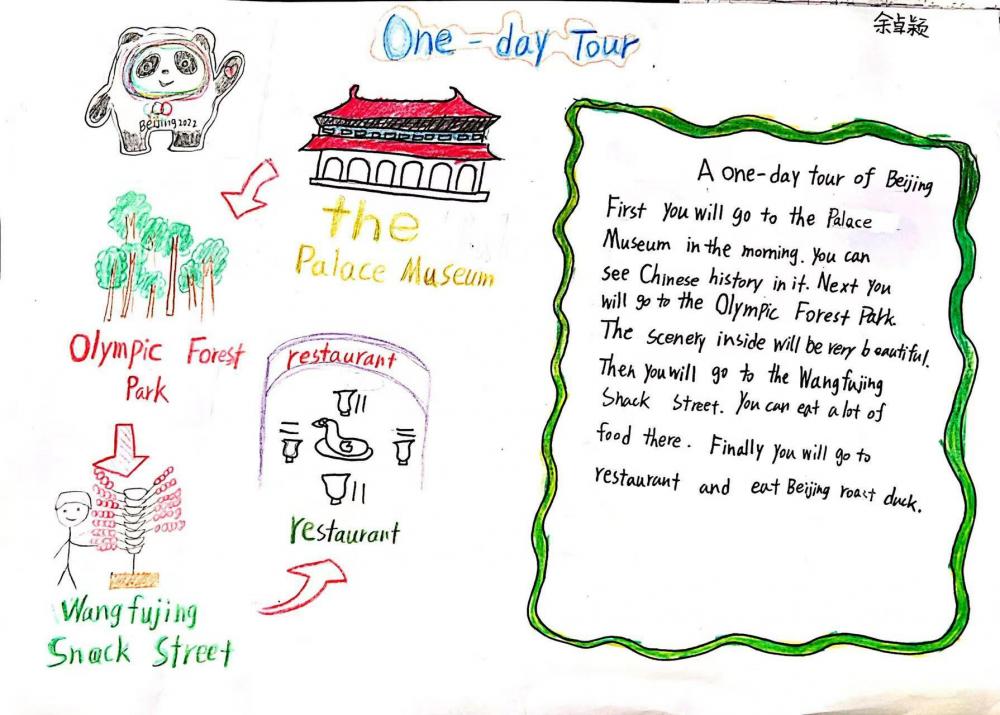 One-day Tour
余卓颖
Beijing 2022
the
Palace Museum
Olympic Forest
Park
restaurant
restaurant
Wangfujing
Snack Street
A one-day tour of Beijing
First you will go to the Palace
Museum in the morning. you can
see Chinese history in it. Next you
will go to the Olympic Forest Park.
The scenery inside will be very beautiful.
Then you will go to the Wangfujing
Snack Street. You can eat a lot of
food there. Finally you will go to
restaurant and eat Beijing roast duck.